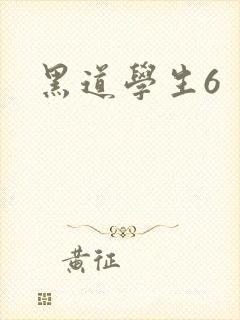 黑道學生6
黃征